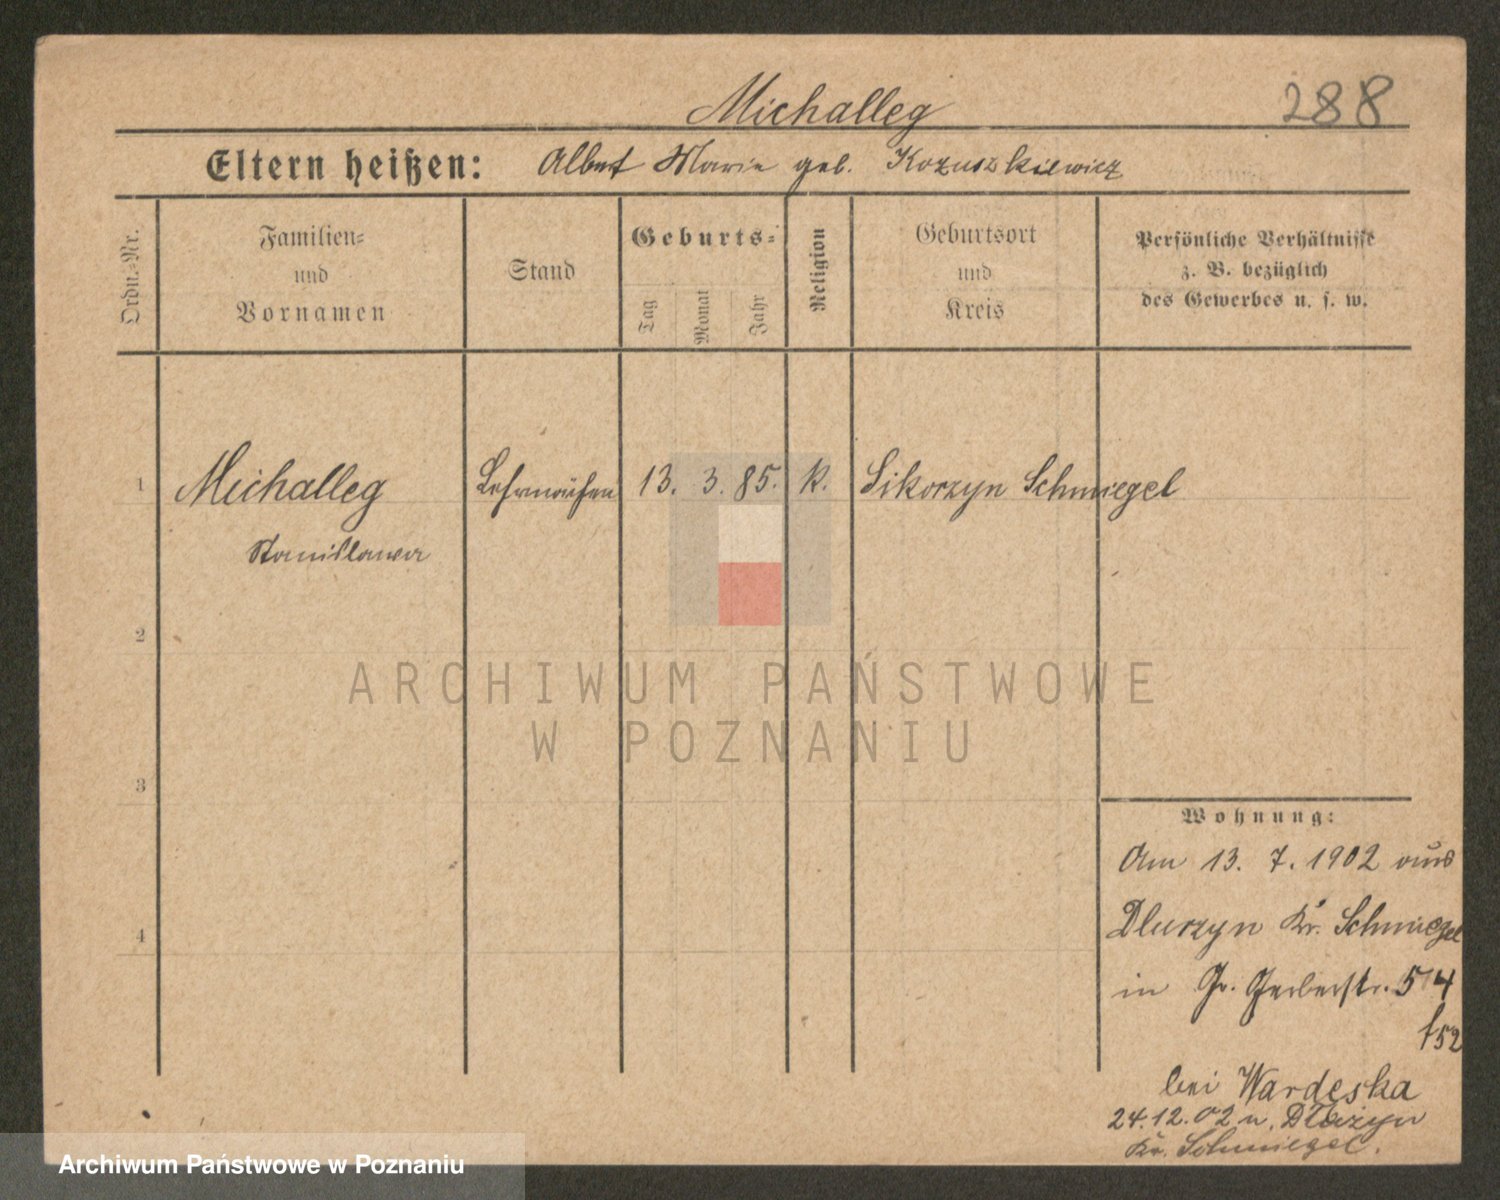 288
Michalleg
Eltern heißen: Albert Marie geb. Kozuszkiewicz
Ordn.-Nr.
Familien-
und
Vornamen
Stand
Geburts-
Tag
Monat
Jahr
Religion
Geburtsort
und
Kreis
Persönliche Verhältnisse
z. B. bezüglich
des Gewerbes u. s. w.
1 Michalleg 13. 3. 85. k. Sikorzyn Schmiegel
Stanislawa
2
3
4
Wohnung:
Am 13. 7. 1902 aus
Dlurzyn Kr. Schmiegel
in Gr. Gerberstr. 54
f52
bei Wardeska
24.12.02 n. Dłużyn
Kr. Schmiegel.
ARCHIWUM PAŃSTWOWE
W POZNANIU
Archiwum Państwowe w Poznaniu